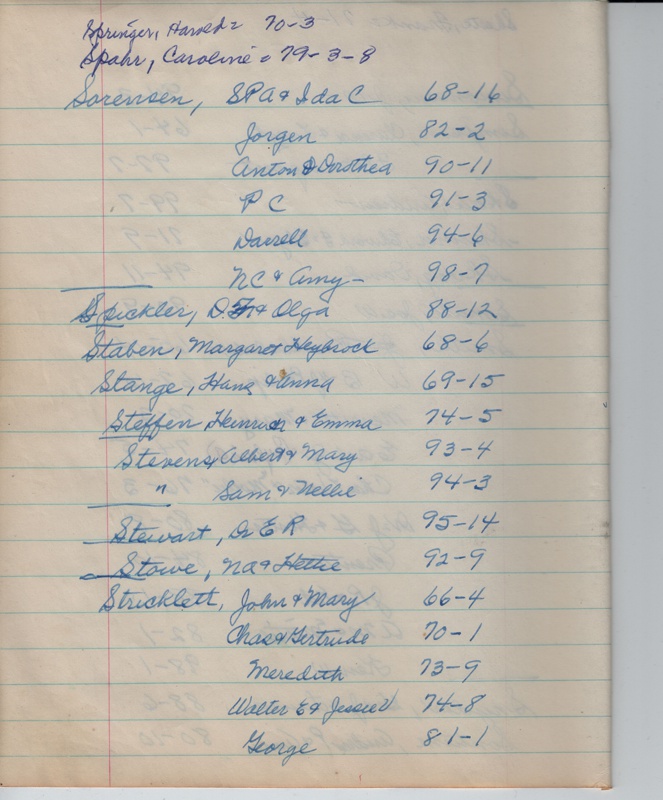 Springer, Harold = 70-3
Spahr, Caroline = 79-3-8
Sorensen, SPA & Ida C 68-16
Jorgen 82-2
Anton & Dorothea 90-11
P C 91-3
Darrell 94-6
NC & Amy 98-7
Spickler, D. & Olga 88-12
Staben, Margaret Heybrock 68-6
Stange, Hans & Anna 69-15
Steffen Heinrich & Emma 74-5
Stevens Albert & Mary 93-4
" Sam & Nellie 94-3
Stewart, Dr E R 95-14
Stowe, NA & Hettie 92-9
Stricklett, John & Mary 66-4
Chas & Gertrude 70-1
Meredith 73-9
Walter E & Jessie 74-8
George 81-1